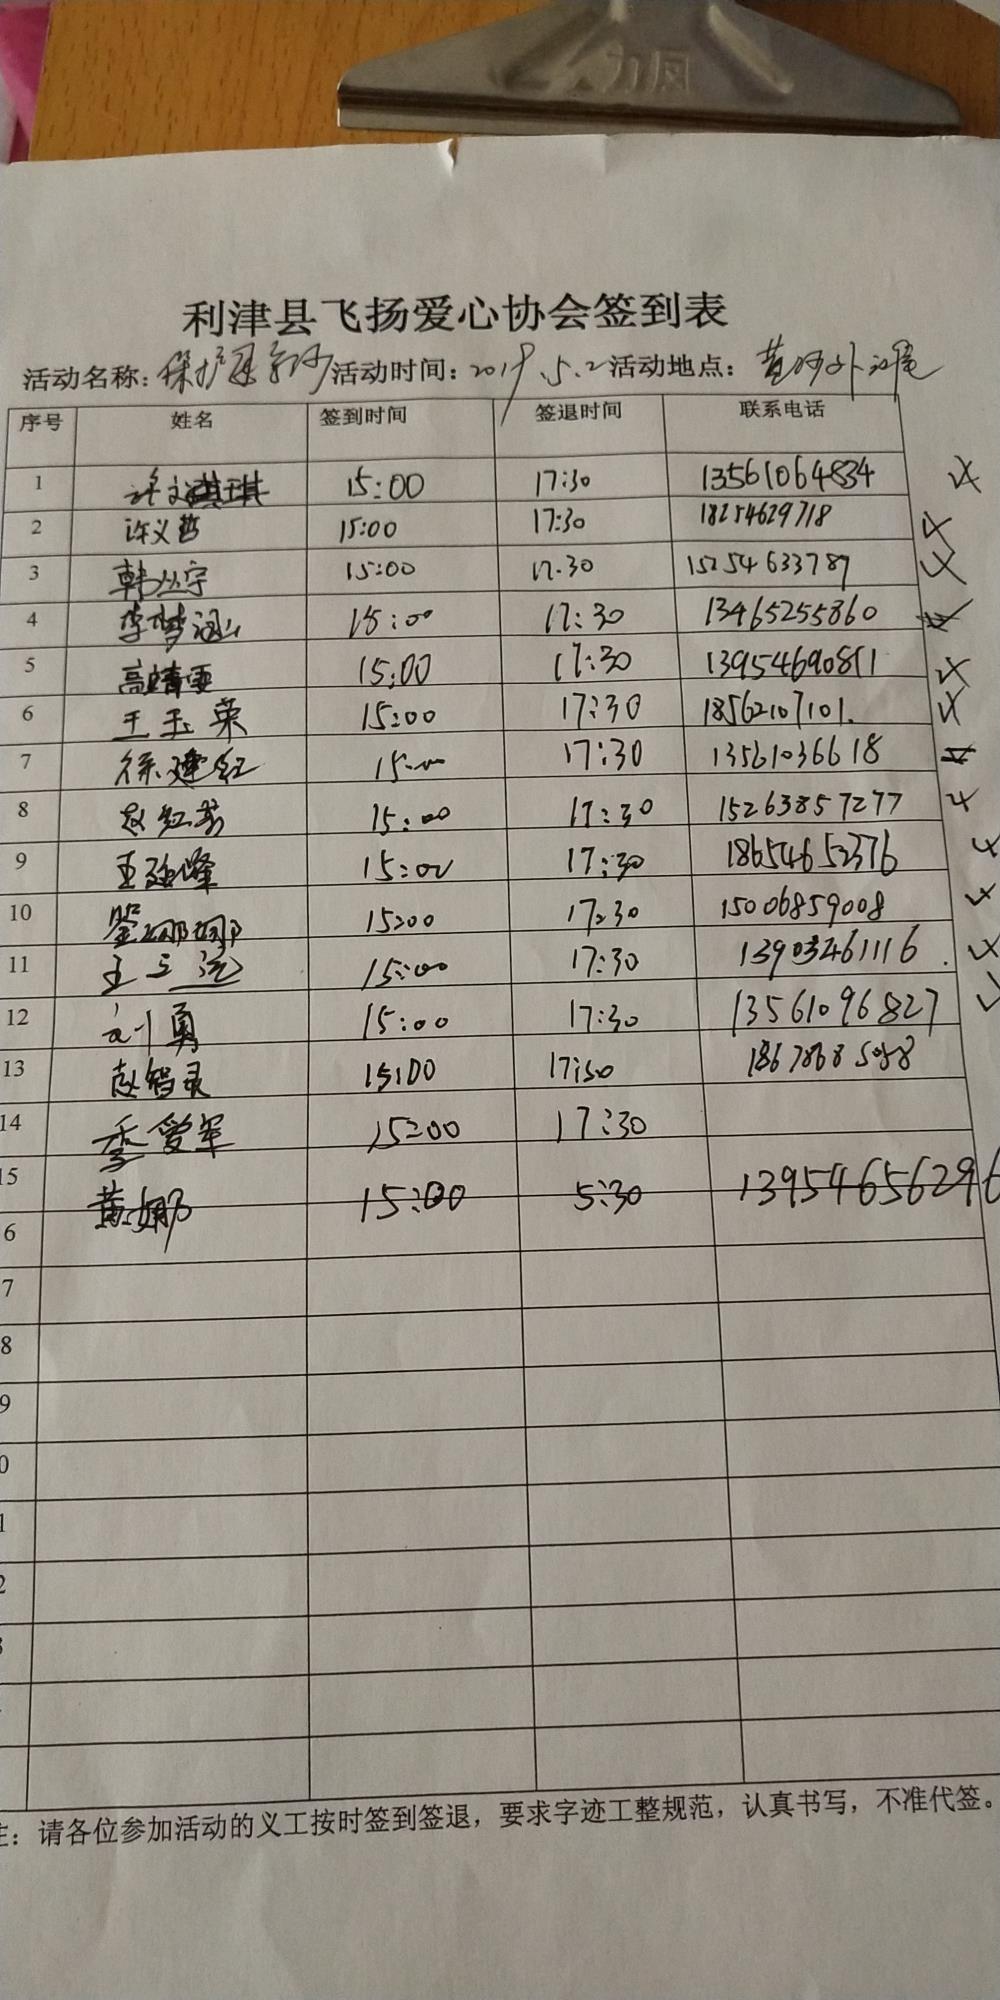 力凤
利津县飞扬爱心协会签到表
活动名称：保护母亲河 活动时间：2019.5.2 活动地点：黄河外滩
序号 姓名 签到时间 签退时间 联系电话
1 15:00 17:30 13561064834
2 许义哲 15:00 17:30 18254629718
3 韩丛宇 15:00 17.30 15254633789
4 李梦涵 15:00 17:30 13465255860
5 高靖雯 15:00 17:30 13954690811
6 王玉荣 15:00 17:30 18562107101.
7 徐建红 15:00 17:30 13561036618
8 赵红芳 15:00 17:30 15263857277
9 王延峰 15:00 17:30 18654652376
10 娜娜 15:00 17:30 15006859008
11 王三运 15:00 17:30 13903461116.
12 刘勇 15:00 17:30 13561096827
13 赵智录 15:00 17:30 18678685088
14 季爱军 15:00 17:30
15 黄娜 15:00 5:30 13954656296
6
7
8
9
0
1
2
3
注：请各位参加活动的义工按时签到签退，要求字迹工整规范，认真书写，不准代签。